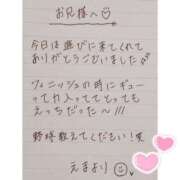 お兄様へ♡
今日は遊びに来てくれて
ありがとうございました
フィニッシュの時にギューっ
て入っててとっても
えっちだった〜!!!
野球教えてくださいも!笑
えまより